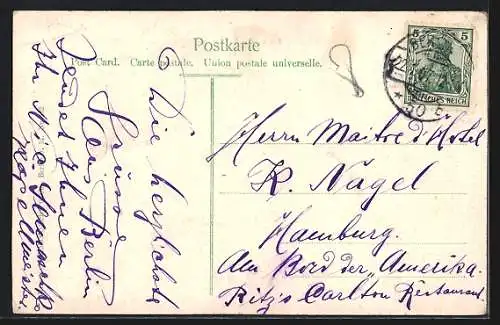 Postkarte
Post Card. Carte postale. Union postale universelle.
5 5
DEUTSCHES REICH
Die herzlichste
Grüsse
Aus Berlin
sendet Ihnen
Ihr
Kapellmeister.
Herrn Maitre d'Hotel
K. Nagel
Hamburg.
Am Bord der „Amerika.
Ritz's Carlton Restaurant